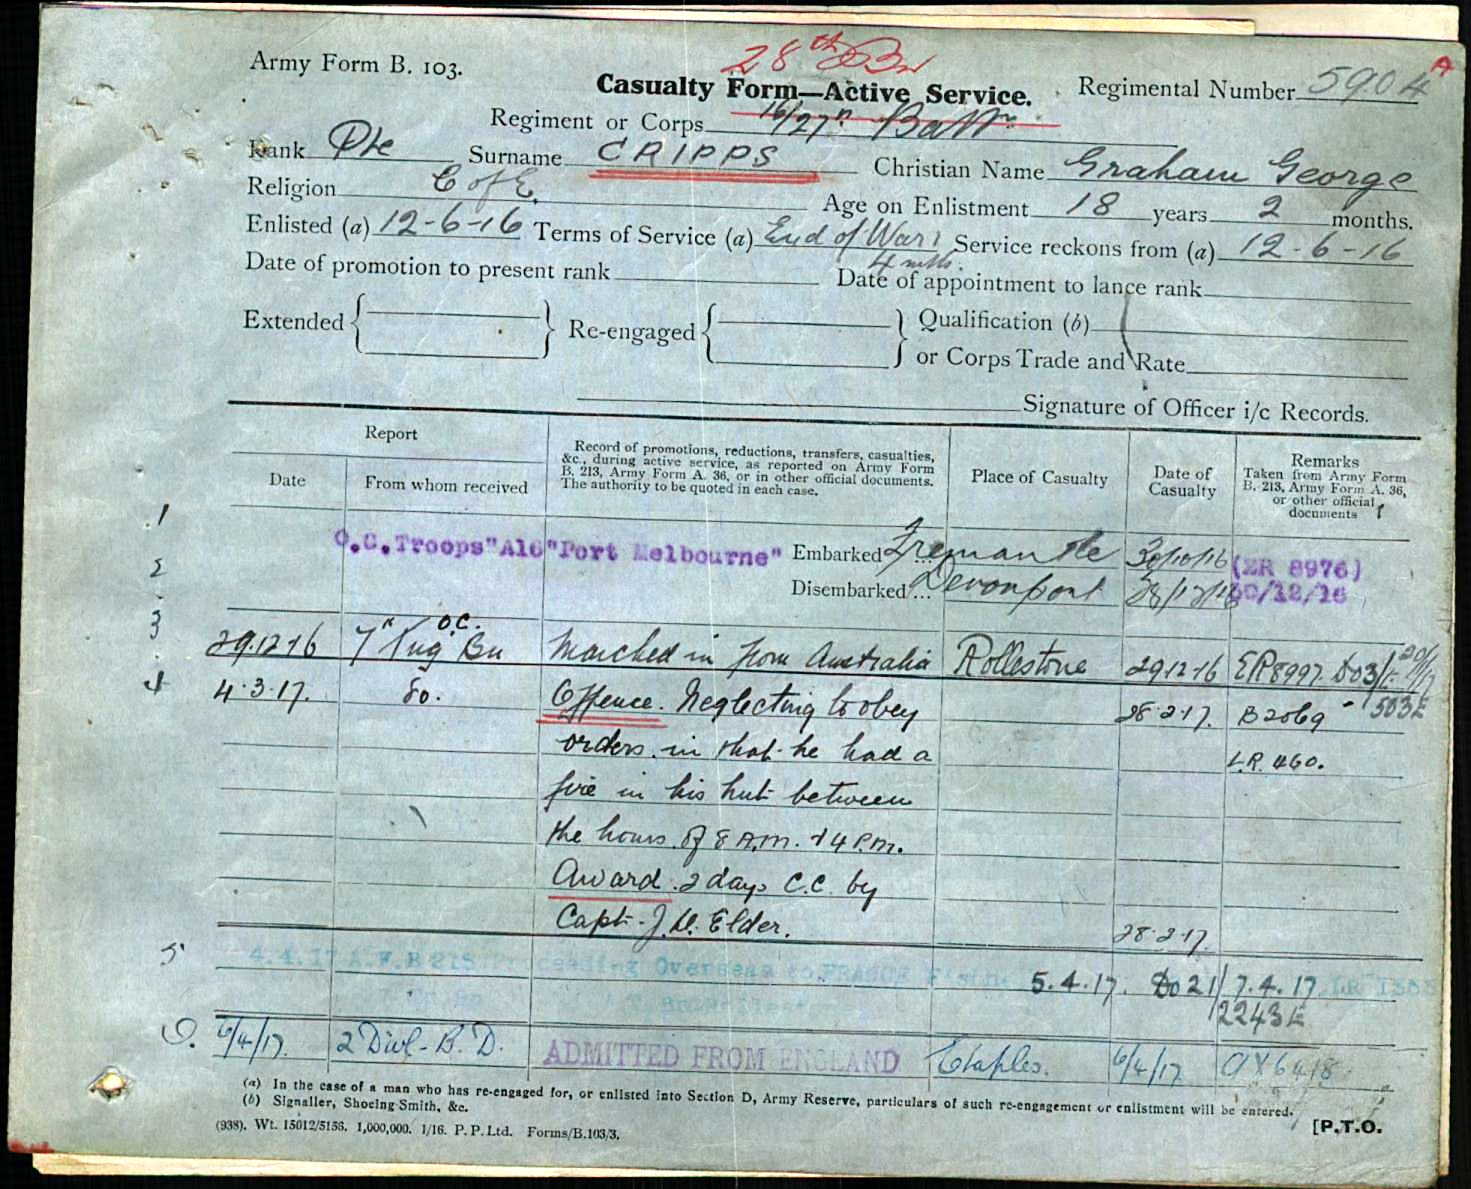 28th Bn
Army Form B. 103.
Casualty Form—Active Service.
Regimental Number 5904 A
Regiment or Corps 16/27th Battn
Rank Pte Surname CRIPPS Christian Name Graham George
Religion C of E. Age on Enlistment 18 years 2 months.
Enlisted (a) 12-6-16 Terms of Service (a) End of War & Service reckons from (a) 12-6-16
4 mths.
Date of promotion to present rank Date of appointment to lance rank
Extended Re-engaged Qualification (b)
or Corps Trade and Rate
Signature of Officer i/c Records.
Report
Date From whom received
Record of promotions, reductions, transfers, casualties,
&c., during active service, as reported on Army Form
B. 213, Army Form A. 36, or in other official documents.
The authority to be quoted in each case.
Place of Casualty
Date of
Casualty
Remarks
Taken from Army Form
B. 213, Army Form A. 36,
or other official
documents
1
O.C. Troops "A16" Port Melbourne" Embarked Fremantle 30/10/16 (ER 8976)
2
Disembarked ... Devonport 28/12/16 30/12/16
3
O.C.
29.12.16 7th Trng Bn Marched in from Australia Rollestone 29.12.16 ER 8997. Do3/
4
4.3.17. Do. Offence. Neglecting to obey 28.2.17. B2069 503E
orders in that he had a L.R. 460.
fire in his hut between
the hours of 8 A.M. & 4 P.M.
Award. 2 days C.C. by
Capt. J. D. Elder. 28.2.17.
5
4.4.17 A.F.B 213 Proceeding Overseas to FRANCE 5.4.17. Do 21/7.4.17. LR
2243E
6. 6/4/17. 2 Divl. B. D. ADMITTED FROM ENGLAND Etaples. 6/4/17
(a) In the case of a man who has re-engaged for, or enlisted into Section D, Army Reserve, particulars of such re-engagement or enlistment will be entered.
(b) Signaller, Shoeing Smith, &c.
(938). Wt. 15012/5156. 1,000,000. 1/16. P. P. Ltd. Forms/B.103/3.
[P.T.O.